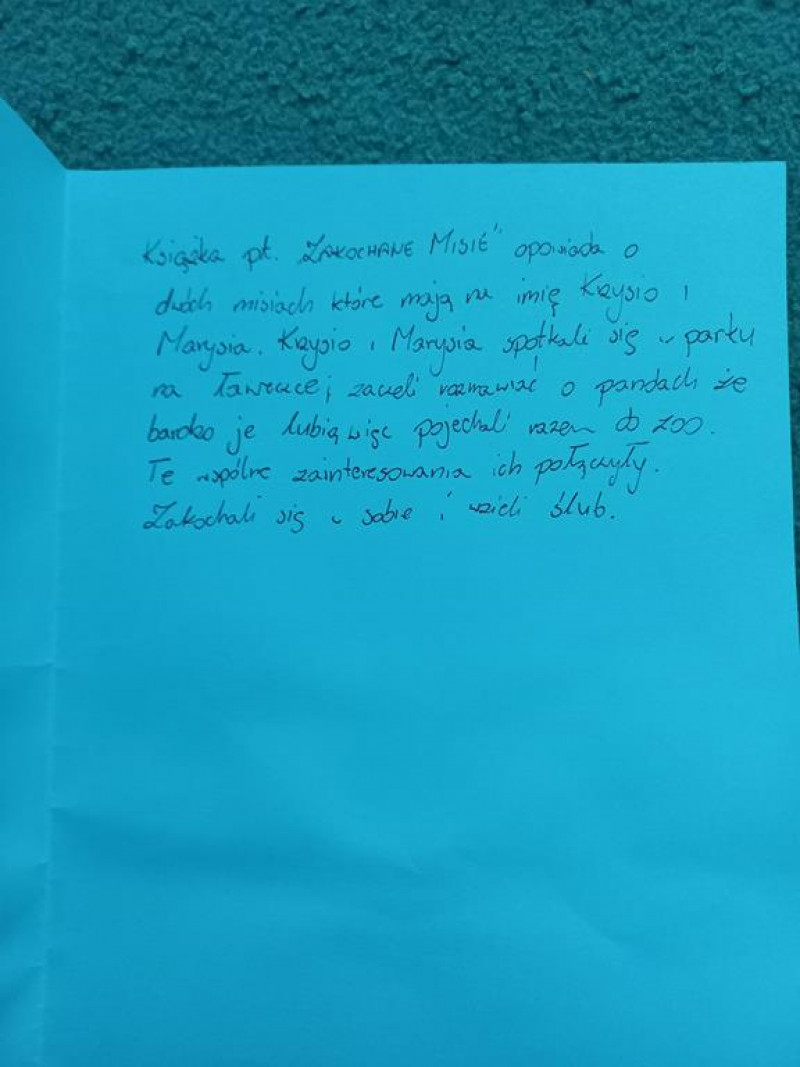 Książka pt. „ZAKOCHANE MISIE" opowiada o
dwóch misiach które mają na imię Krzysio i
Marysia. Krzysio i Marysia spotkali się w parku
na ławeczce i zaczeli rozmawiać o pandach że
bardzo je lubią więc pojechali razem do zoo.
Te wspólne zainteresowania ich połączyły.
Zakochali się w sobie i wzieli ślub.